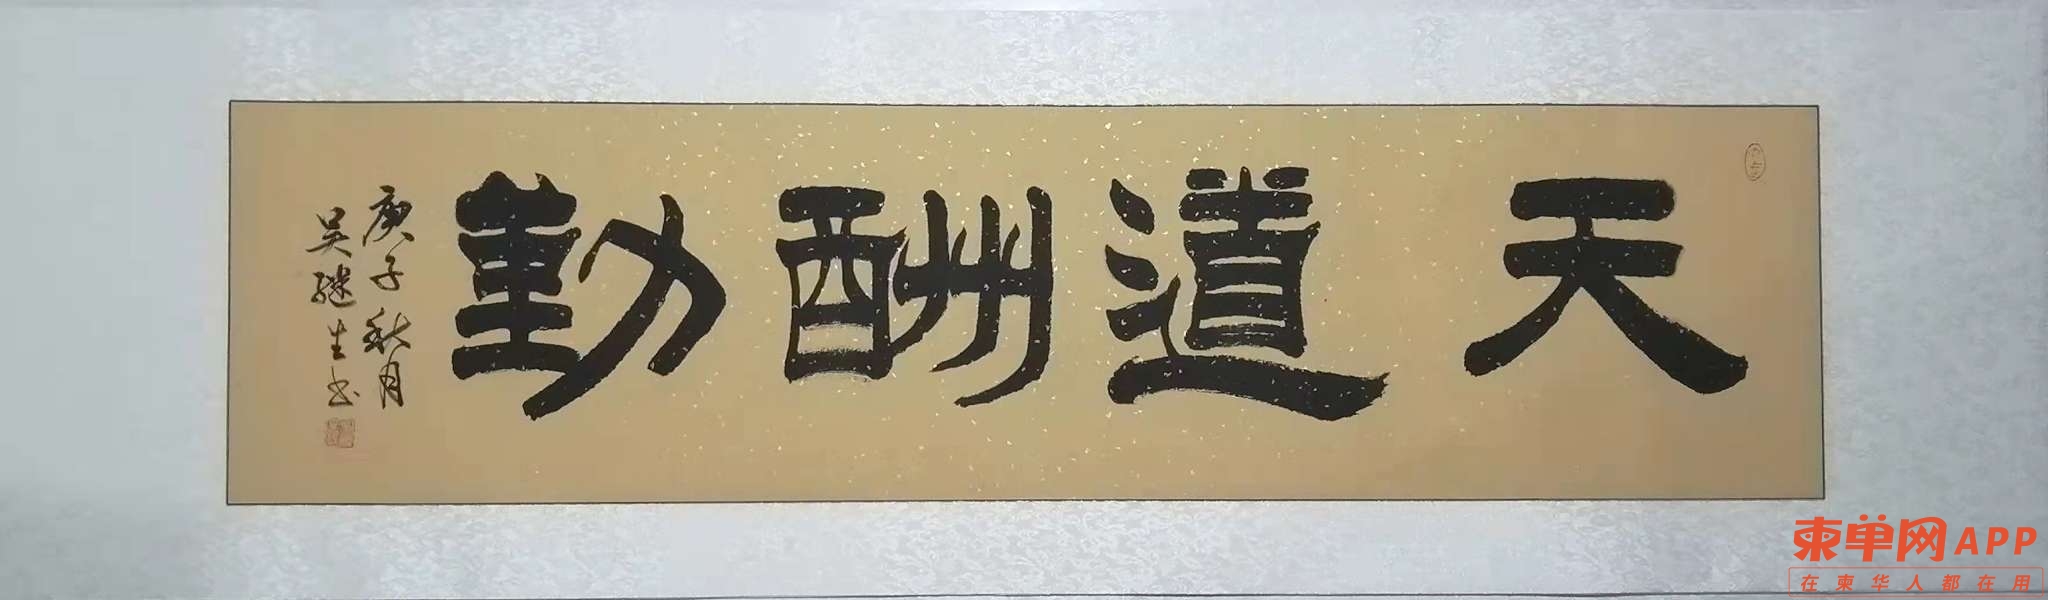 天道酬勤
庚子秋月
吴继生书
柬单网APP
在柬华人都在用